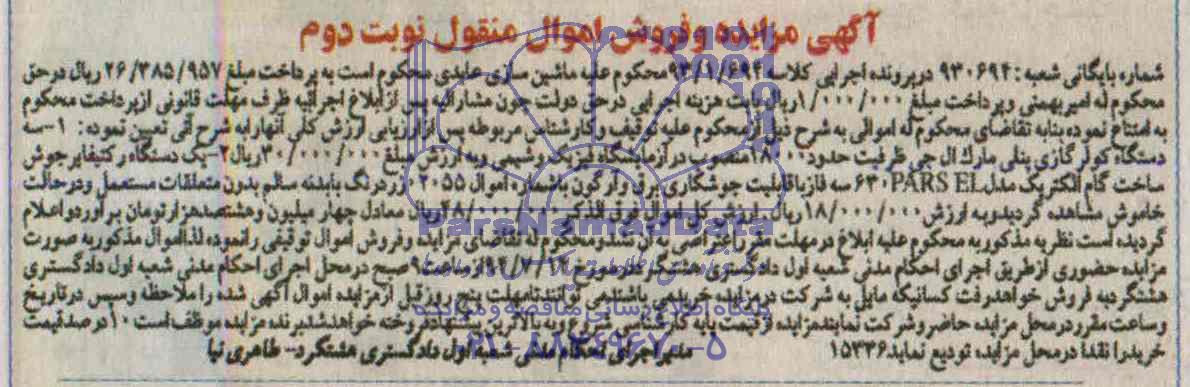 آگهی مزایده وفروش اموال منقول نوبت دوم
شماره بایگانی شعبه: ۹۳۰۶۹۴ درپرونده اجرایی کلاسه ۹۳/۱/۶۹۴ محکوم علیه ماشین سازی عابدی محکوم است به پرداخت مبلغ ۲۶/۳۸۵/۹۵۷ ریال درحق
محکوم له امیربهمنی وپرداخت مبلغ ۱/۰۰۰/۰۰۰ریال بابت هزینه اجرایی درحق دولت چون مشارالیه پس ازابلاغ اجرائیه ظرف مهلت قانونی ازپرداخت محکوم
به امتناع نموده بنابه تقاضای محکوم له اموالی به شرح ذیل ازمحکوم علیه توقیف وکارشناس مربوطه پس ازارزیابی ارزش کلی آنهارابه شرح آتی تعیین نموده: ۱-سه
دستگاه کولرگازی پنلی مارک ال جی ظرفیت حدود۱۸۰۰۰منصوب درآزمایشگاه فیزیک وشیمی وبه ارزش مبلغ۳۰/۰۰۰/۰۰۰ریال۲-یک دستگاه رکتیفایرجوش
ساخت گام الکتریک مدل PARS EL۶۳۰ سه فازباقابلیت جوشکاری برق وآرگون باشماره اموال ۰۲۰۵۵زردرنگ بابدنه سالم بدون متعلقات مستعمل ودرحالت
خاموش مشاهده گردیدوبه ارزش۱۸/۰۰۰/۰۰۰ریال باارزش کل اموال فوق الذکر ۴۸/۰۰۰/۰۰۰ریال معادل چهار میلیون وهشتصدهزارتومان برآوردواعلام
گردیده است نظربه مذکوربه محکوم علیه ابلاغ درمهلت مقررباعتراضی به آن نشدومحکوم له تقاضای مزایده وفروش اموال توقیفی رانموده لذااموال مذکوربه صورت
مزایده حضوری ازطریق اجرای احکام مدنی شعبه اول دادگستری هشتگرد مورخ ازساعت۹صبح درمحل اجرای احکام مدنی شعبه اول دادگستری
هشتگردبه فروش خواهدرفت کسانیکه مایل به شرکت درمزایده خریدمی باشندمی توانندتامهلت پنج روزقبل ازمزایده اموال آگهی شده را ملاحظه وسپس درتاریخ
وساعت مقرردرمحل مزایده حاضروشرکت نمایندمزایده ازقیمت پایه کارشناسی شروع وبه بالاترین پیشنهادفروخته خواهدشدبرنده مزایده موظف است ۱۰درصدقیمت
خریدرا نقدا درمحل مزایده تودیع نماید۱۵۳۳۶
مدیراجرای احکام مدنی شعبه اول دادگستری هشتگرد- طاهری نیا
ParsNamadData
پایگاه اطلاع رسانی مناقصه و مزایده
۰۲۱-۸۸۳۴۹۶۷۰-۵